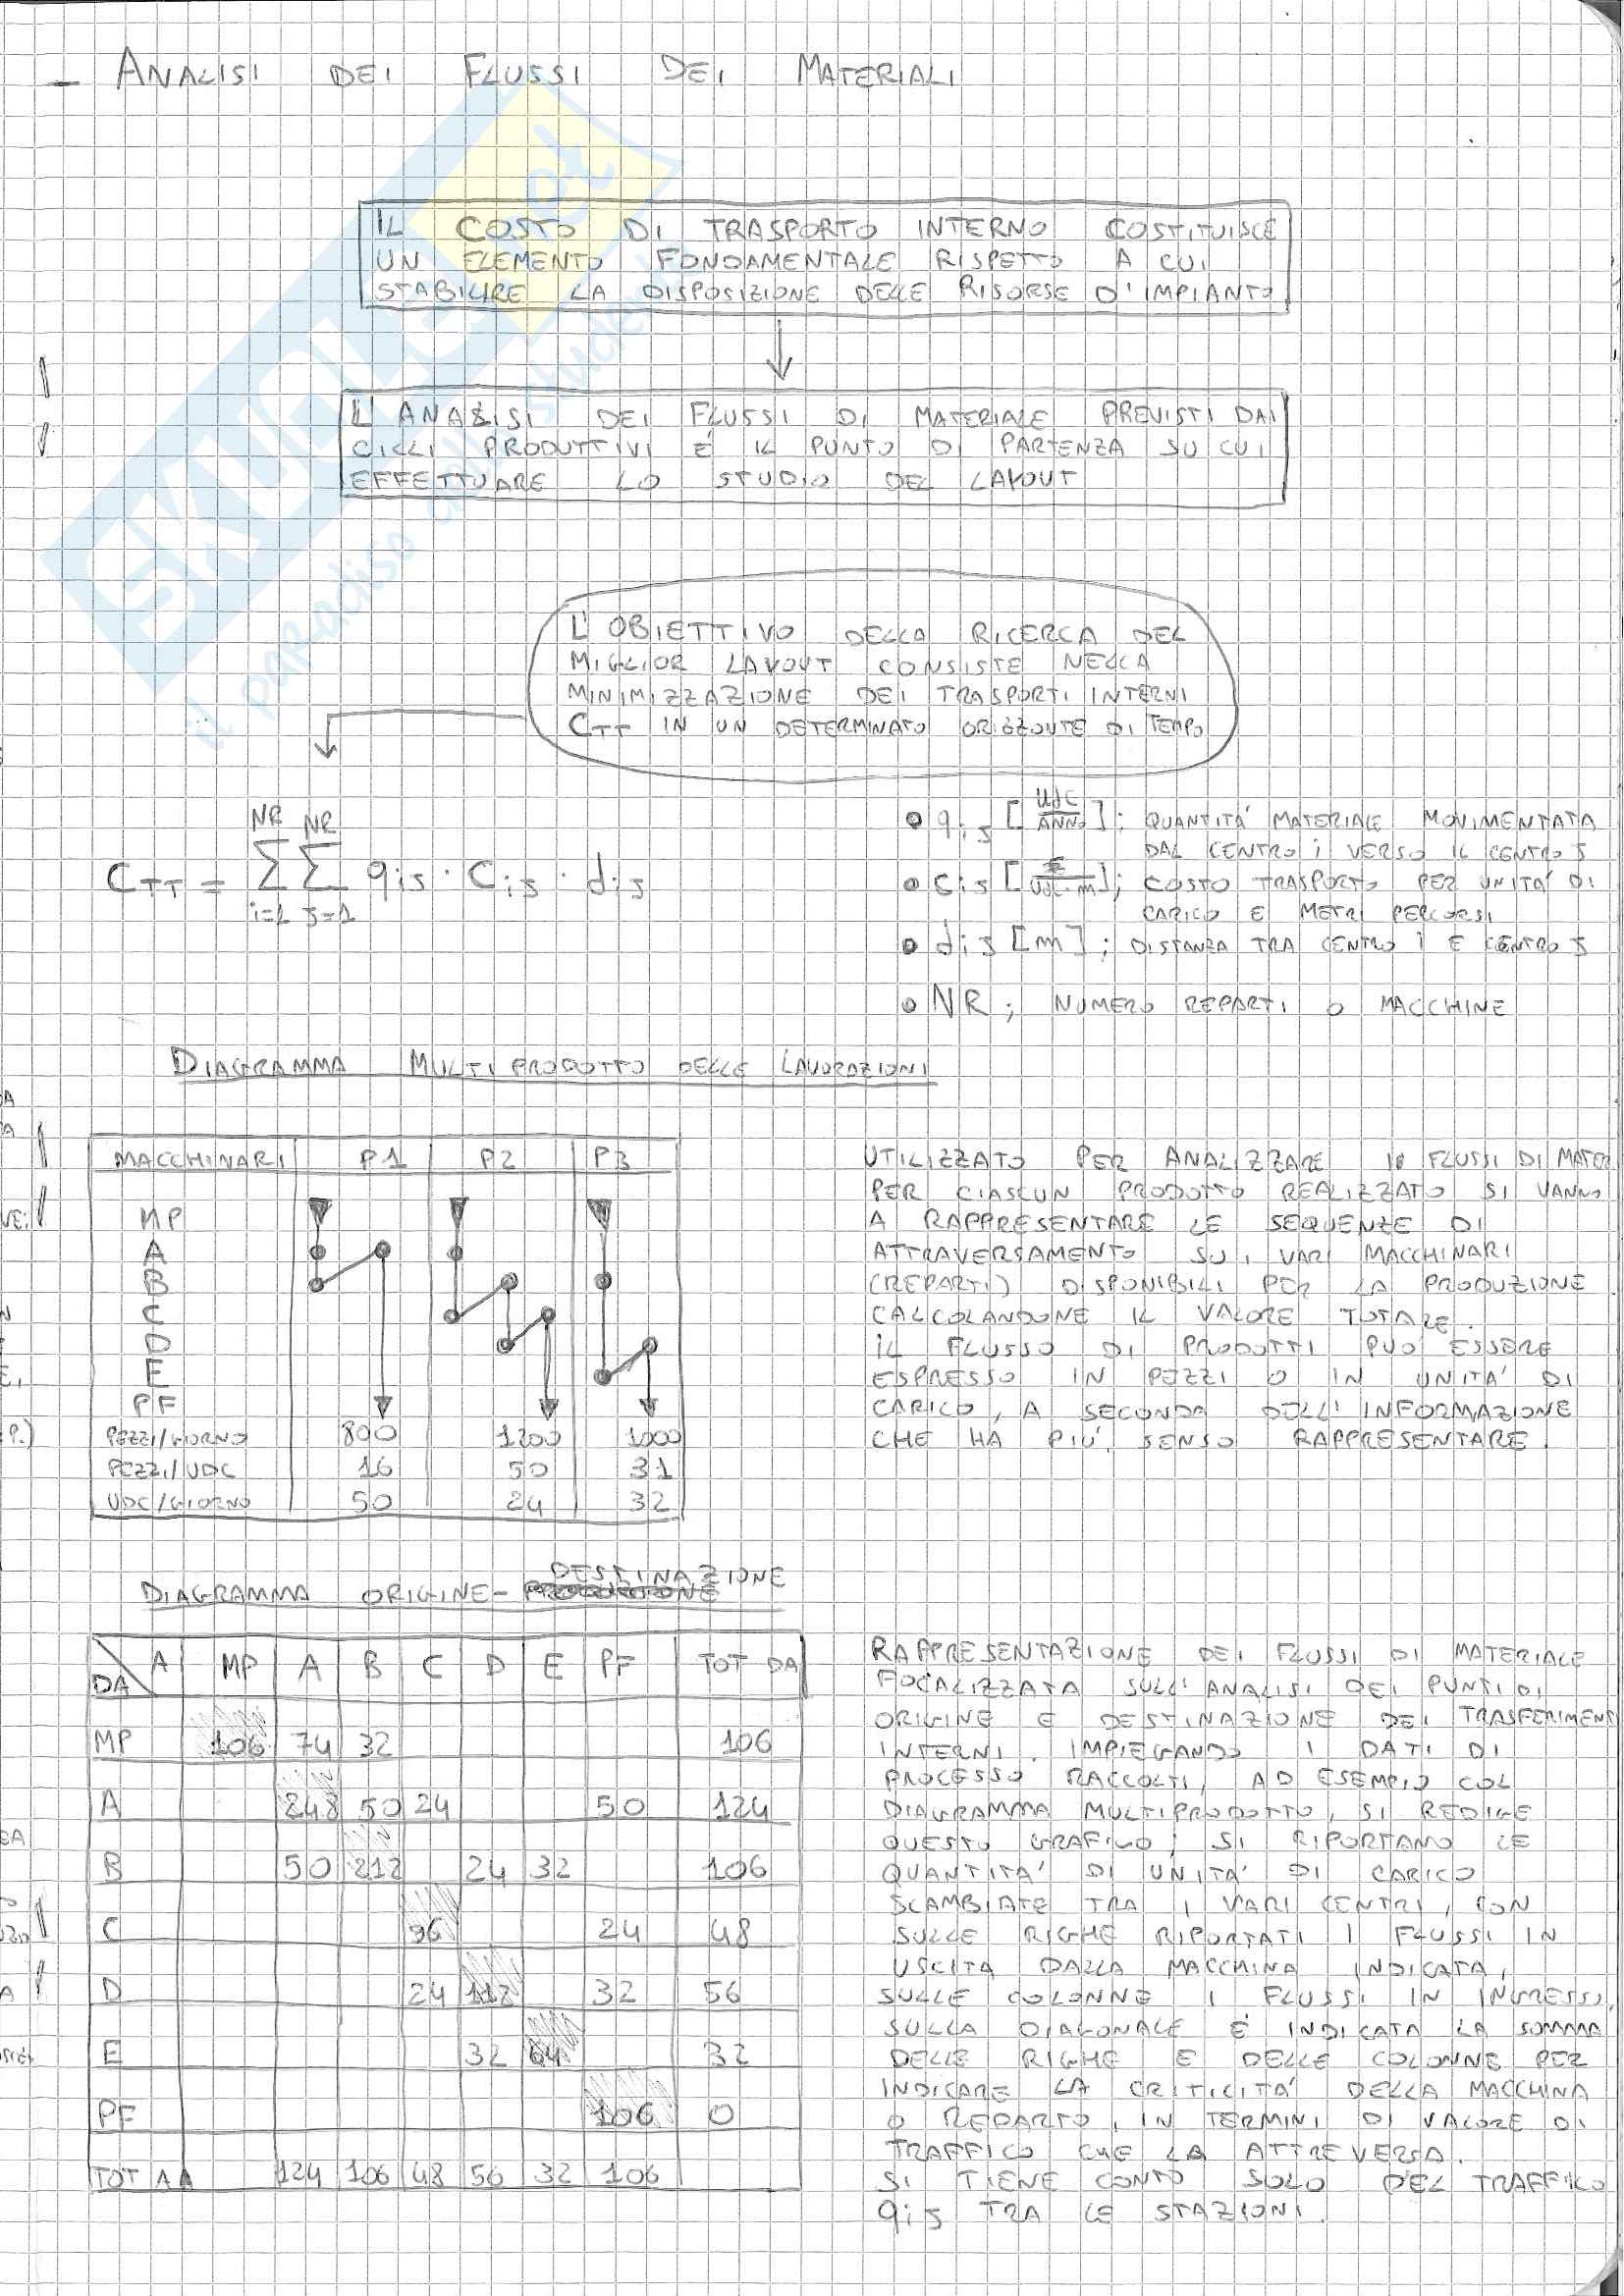 - ANALISI DEI FLUSSI DEI MATERIALI
IL COSTO DI TRASPORTO INTERNO COSTITUISCE
UN ELEMENTO FONDAMENTALE RISPETTO A CUI
STABILIRE LA DISPOSIZIONE DELLE RISORSE D'IMPIANTO
L'ANALISI DEI FLUSSI DI MATERIALE PREVISTI DAI
CICLI PRODUTTIVI É IL PUNTO DI PARTENZA SU CUI
EFFETTUARE LO STUDIO DEL LAYOUT
SKUOLA.net
il paradiso dello studente
L'OBIETTIVO DELLA RICERCA DEL
MIGLIOR LAYOUT CONSISTE NELLA
MINIMIZZAZIONE DEI TRASPORTI INTERNI
CTT IN UN DETERMINATO ORIZZONTE DI TEMPO
CTT = NR∑i=1 NR∑j=1 qij · Cij · dij
• qij [UdC/ANNO]; QUANTITA' MATERIALE MOVIMENTATA
DAL CENTRO i VERSO IL CENTRO J
• Cij [€/UdC·m]; COSTO TRASPORTO PER UNITA' DI
CARICO E METRI PERCORSI
• dij [m]; DISTANZA TRA CENTRO i E CENTRO J
• NR; NUMERO REPARTI O MACCHINE
DIAGRAMMA MULTIPRODOTTO DELLE LAVORAZIONI
MACCHINARI P1 P2 P3
MP
A
B
C
D
E
PF
PEZZI/GIORNO 800 1200 1000
PEZZI/UDC 16 50 31
UDC/GIORNO 50 24 32
UTILIZZATO PER ANALIZZARE I FLUSSI DI MATER
PER CIASCUN PRODOTTO REALIZZATO SI VANNO
A RAPPRESENTARE LE SEQUENZE DI
ATTRAVERSAMENTO SUI VARI MACCHINARI
(REPARTI) DISPONIBILI PER LA PRODUZIONE
CALCOLANDONE IL VALORE TOTALE.
IL FLUSSO DI PRODOTTI PUÒ ESSERE
ESPRESSO IN PEZZI O IN UNITA' DI
CARICO, A SECONDA DELL'INFORMAZIONE
CHE HA PIÚ SENSO RAPPRESENTARE.
DIAGRAMMA ORIGINE-DESTINAZIONE
DA A MP A B C D E PF TOT DA
MP 106 74 32 106
A 248 50 24 50 124
B 50 212 24 32 106
C 96 24 48
D 24 112 32 56
E 32 64 32
PF 106 0
TOT A 124 106 48 56 32 106
RAPPRESENTAZIONE DEI FLUSSI DI MATERIALE
FOCALIZZATA SULL'ANALISI DEI PUNTI DI
ORIGINE E DESTINAZIONE DEI TRASFERIMENTI
INTERNI. IMPIEGANDO I DATI DI
PROCESSO RACCOLTI, AD ESEMPIO COL
DIAGRAMMA MULTIPRODOTTO, SI REDIGE
QUESTO GRAFICO; SI RIPORTANO LE
QUANTITA' DI UNITA' DI CARICO
SCAMBIATE TRA I VARI CENTRI, CON
SULLE RIGHE RIPORTATI I FLUSSI IN
USCITA DALLA MACCHINA INDICATA,
SULLE COLONNE I FLUSSI IN INGRESSO,
SULLA DIAGONALE É INDICATA LA SOMMA
DELLE RIGHE E DELLE COLONNE PER
INDICARE LA CRITICITA' DELLA MACCHINA
O REPARTO, IN TERMINI DI VALORE DI
TRAFFICO CHE LA ATTREVERSA.
SI TIENE CONTO SOLO DEL TRAFFICO
qij TRA LE STAZIONI.